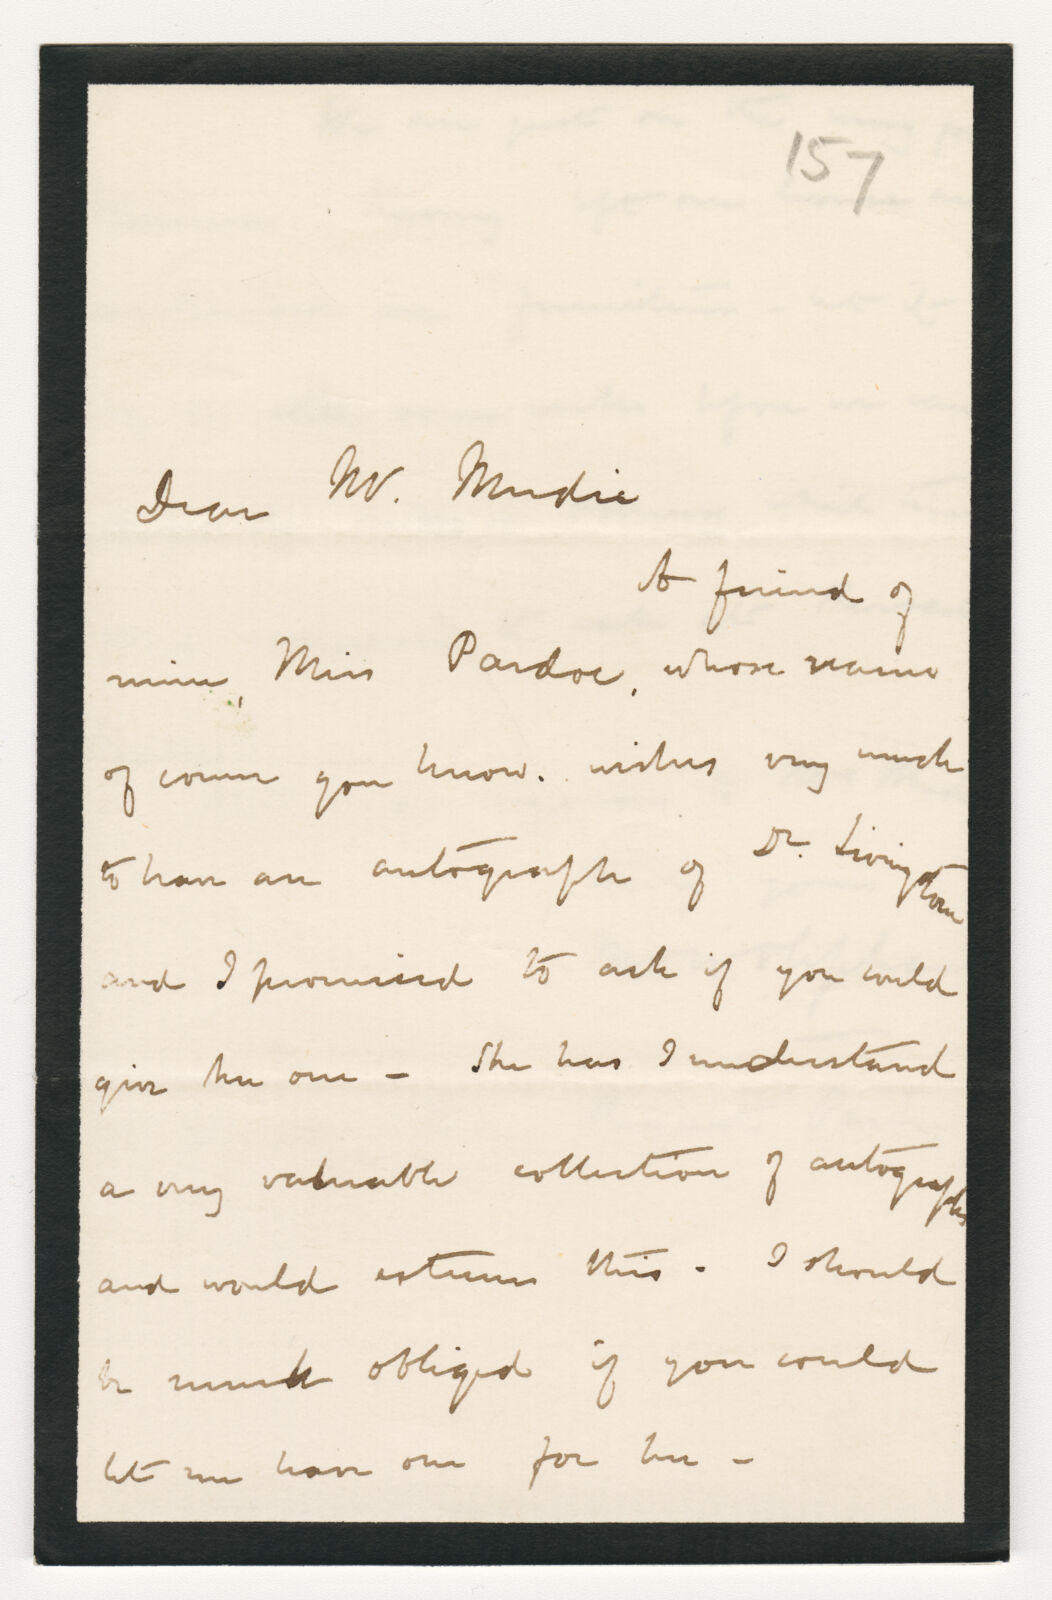 157
Dear Mr. Mudie
A friend of
mine, Miss Pardoe, whose name
of course you know. wishes very much
to have an autograph of Dr. Livingstone
and I promised to ask if you could
give her one - She has I understand
a very valuable collection of autographs
and would esteem this - I should
be much obliged if you could
let me have one for her -